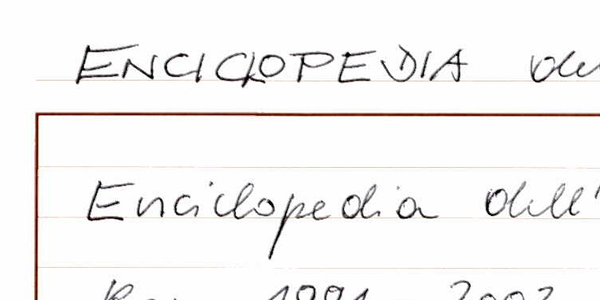 ENCICLOPEDIA
Enciclopedia dell'
1991 - 2003